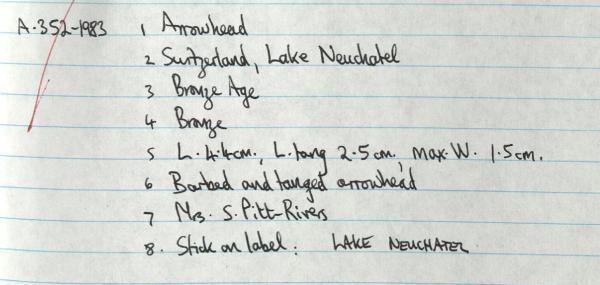 A.352-1983 1 Arrowhead
2 Switzerland, Lake Neuchatel
3 Bronze Age
4 Bronze
5 L. 4.4cm., L. tang 2.5cm, max. W. 1.5cm.
6 Barbed and tanged arrowhead
7 Mrs. S. Pitt-Rivers
8. Stick on label: LAKE NEUCHATEL